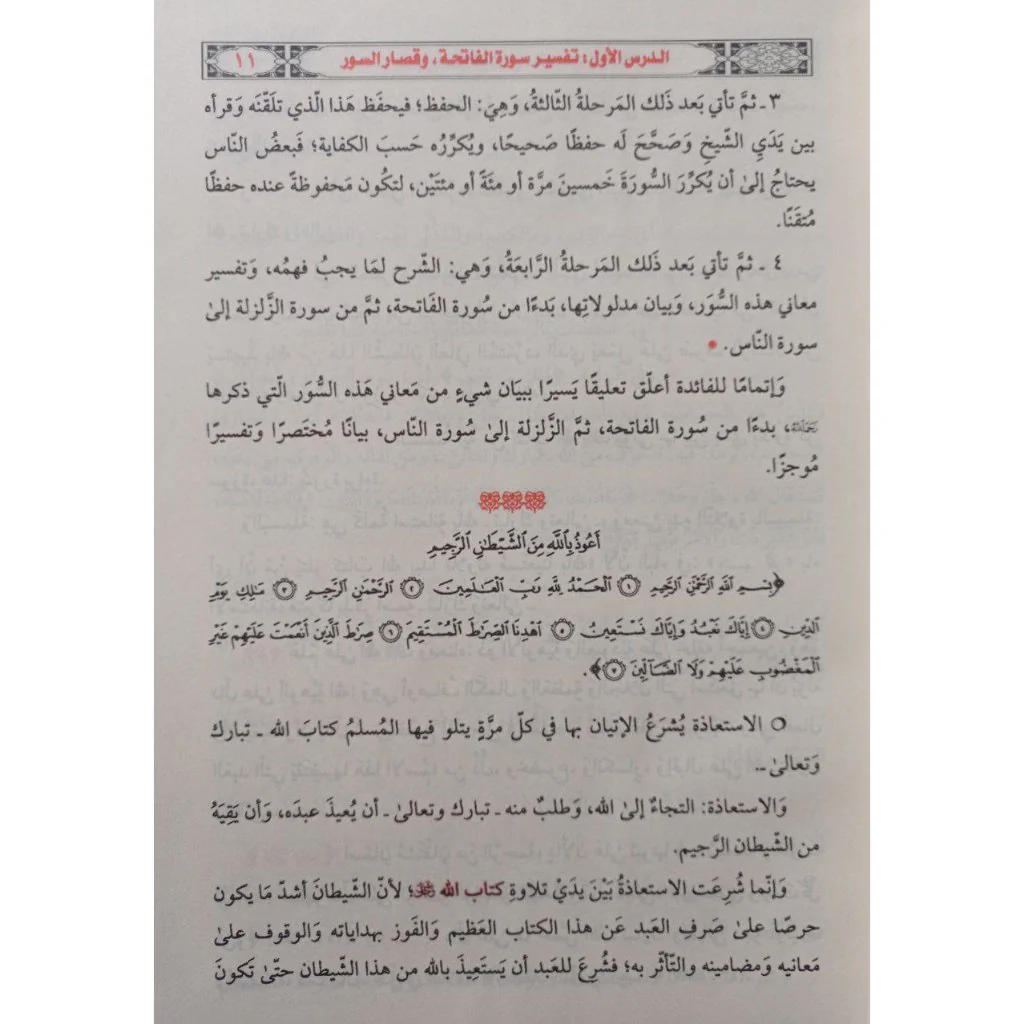 الدرس الأول: تفسير سورة الفاتحة، وقصار السور
١١
٣ ـ ثمَّ تأتي بَعد ذَلك المَرحلةُ الثّالثةُ، وَهِيَ: الحفظ؛ فيحفَظ هَذا الّذي تلقّنَه وَقرأه
بين يَدَيِ الشّيخِ وَصَحَّحَ لَه حفظًا صَحيحًا، ويُكرِّرُه حَسبَ الكفاية؛ فَبعضُ النّاس
يحتاجُ إلىٰ أن يُكرِّرَ السُّورَةَ خَمسينَ مرَّة أو مئَةً أو مئتَيْن، لتكُون مَحفوظةً عنده حفظًا
مُتقَنًا.
٤ ـ ثمَّ تأتي بَعد ذَلك المَرحلةُ الرَّابعَةُ، وَهي: الشّرح لمَا يجبُ فهمُه، وَتفسير
معاني هذه السُّوَر، وَبيان مدلولاتِها، بَدءًا من سُورة الفَاتحة، ثمَّ من سورة الزَّلزلة إلىٰ
سورة النّاس.
وَإتمامًا للفائدة أعلّق تعليقًا يَسيرًا ببيَان شيءٍ من مَعاني هَذه السُّوَر الّتي ذكرها
رَحِمَهُ ٱللَّهُ، بدءًا من سُورة الفاتحة، ثمَّ الزَّلزلة إلىٰ سُورة النّاس، بيانًا مُختَصرًا وَتفسيرًا
مُوجزًا.
أَعُوذُ بِٱللَّهِ مِنَ ٱلشَّيْطَـٰنِ ٱلرَّجِيمِ
﴿بِسْمِ ٱللَّهِ ٱلرَّحْمَـٰنِ ٱلرَّحِيمِ ۝١ ٱلْحَمْدُ لِلَّهِ رَبِّ ٱلْعَـٰلَمِينَ ۝٢ ٱلرَّحْمَـٰنِ ٱلرَّحِيمِ ۝٣ مَـٰلِكِ يَوْمِ
ٱلدِّينِ ۝٤ إِيَّاكَ نَعْبُدُ وَإِيَّاكَ نَسْتَعِينُ ۝٥ ٱهْدِنَا ٱلصِّرَٰطَ ٱلْمُسْتَقِيمَ ۝٦ صِرَٰطَ ٱلَّذِينَ أَنْعَمْتَ عَلَيْهِمْ غَيْرِ
ٱلْمَغْضُوبِ عَلَيْهِمْ وَلَا ٱلضَّآلِّينَ ۝٧﴾.
○ الاستعاذة يُشرَعُ الإتيان بها في كلّ مرَّةٍ يتلو فيها المُسلمُ كتابَ الله ـ تبارك
وَتعالىٰ ـ.
وَالاستعاذة: التجاءٌ إلىٰ الله، وَطلبٌ منه ـ تبارك وتعالىٰ ـ أن يُعيذَ عبدَه، وَأن يَقِيَهُ
من الشّيطان الرَّجيم.
وَإنّما شُرعَت الاستعاذةُ بَيْنَ يدَيْ تلاوةِ كتاب الله ﷻ؛ لأنّ الشّيطانَ أشدّ مَا يكون
حرصًا علىٰ صَرفِ العَبد عَن هذا الكتاب العَظيم وَالفَوز بهداياته وَالوقوف علىٰ
مَعانيه وَمضامينه وَالتّأثّر به؛ فشُرعَ للعَبد أن يَستَعيذَ بالله من هذا الشّيطان حتّىٰ تَكونَ